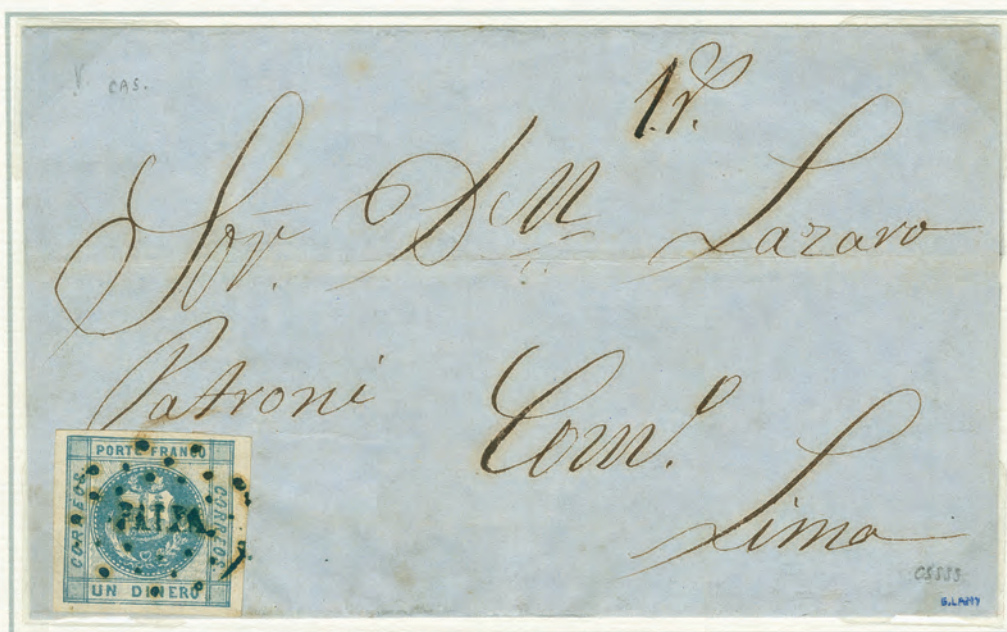 CAS.
1.r.
Sor. Dn. M Lazaro
Patroni Como.
Lima
PORTE FRANCO
CORREOS
CORREOS
UN DINERO